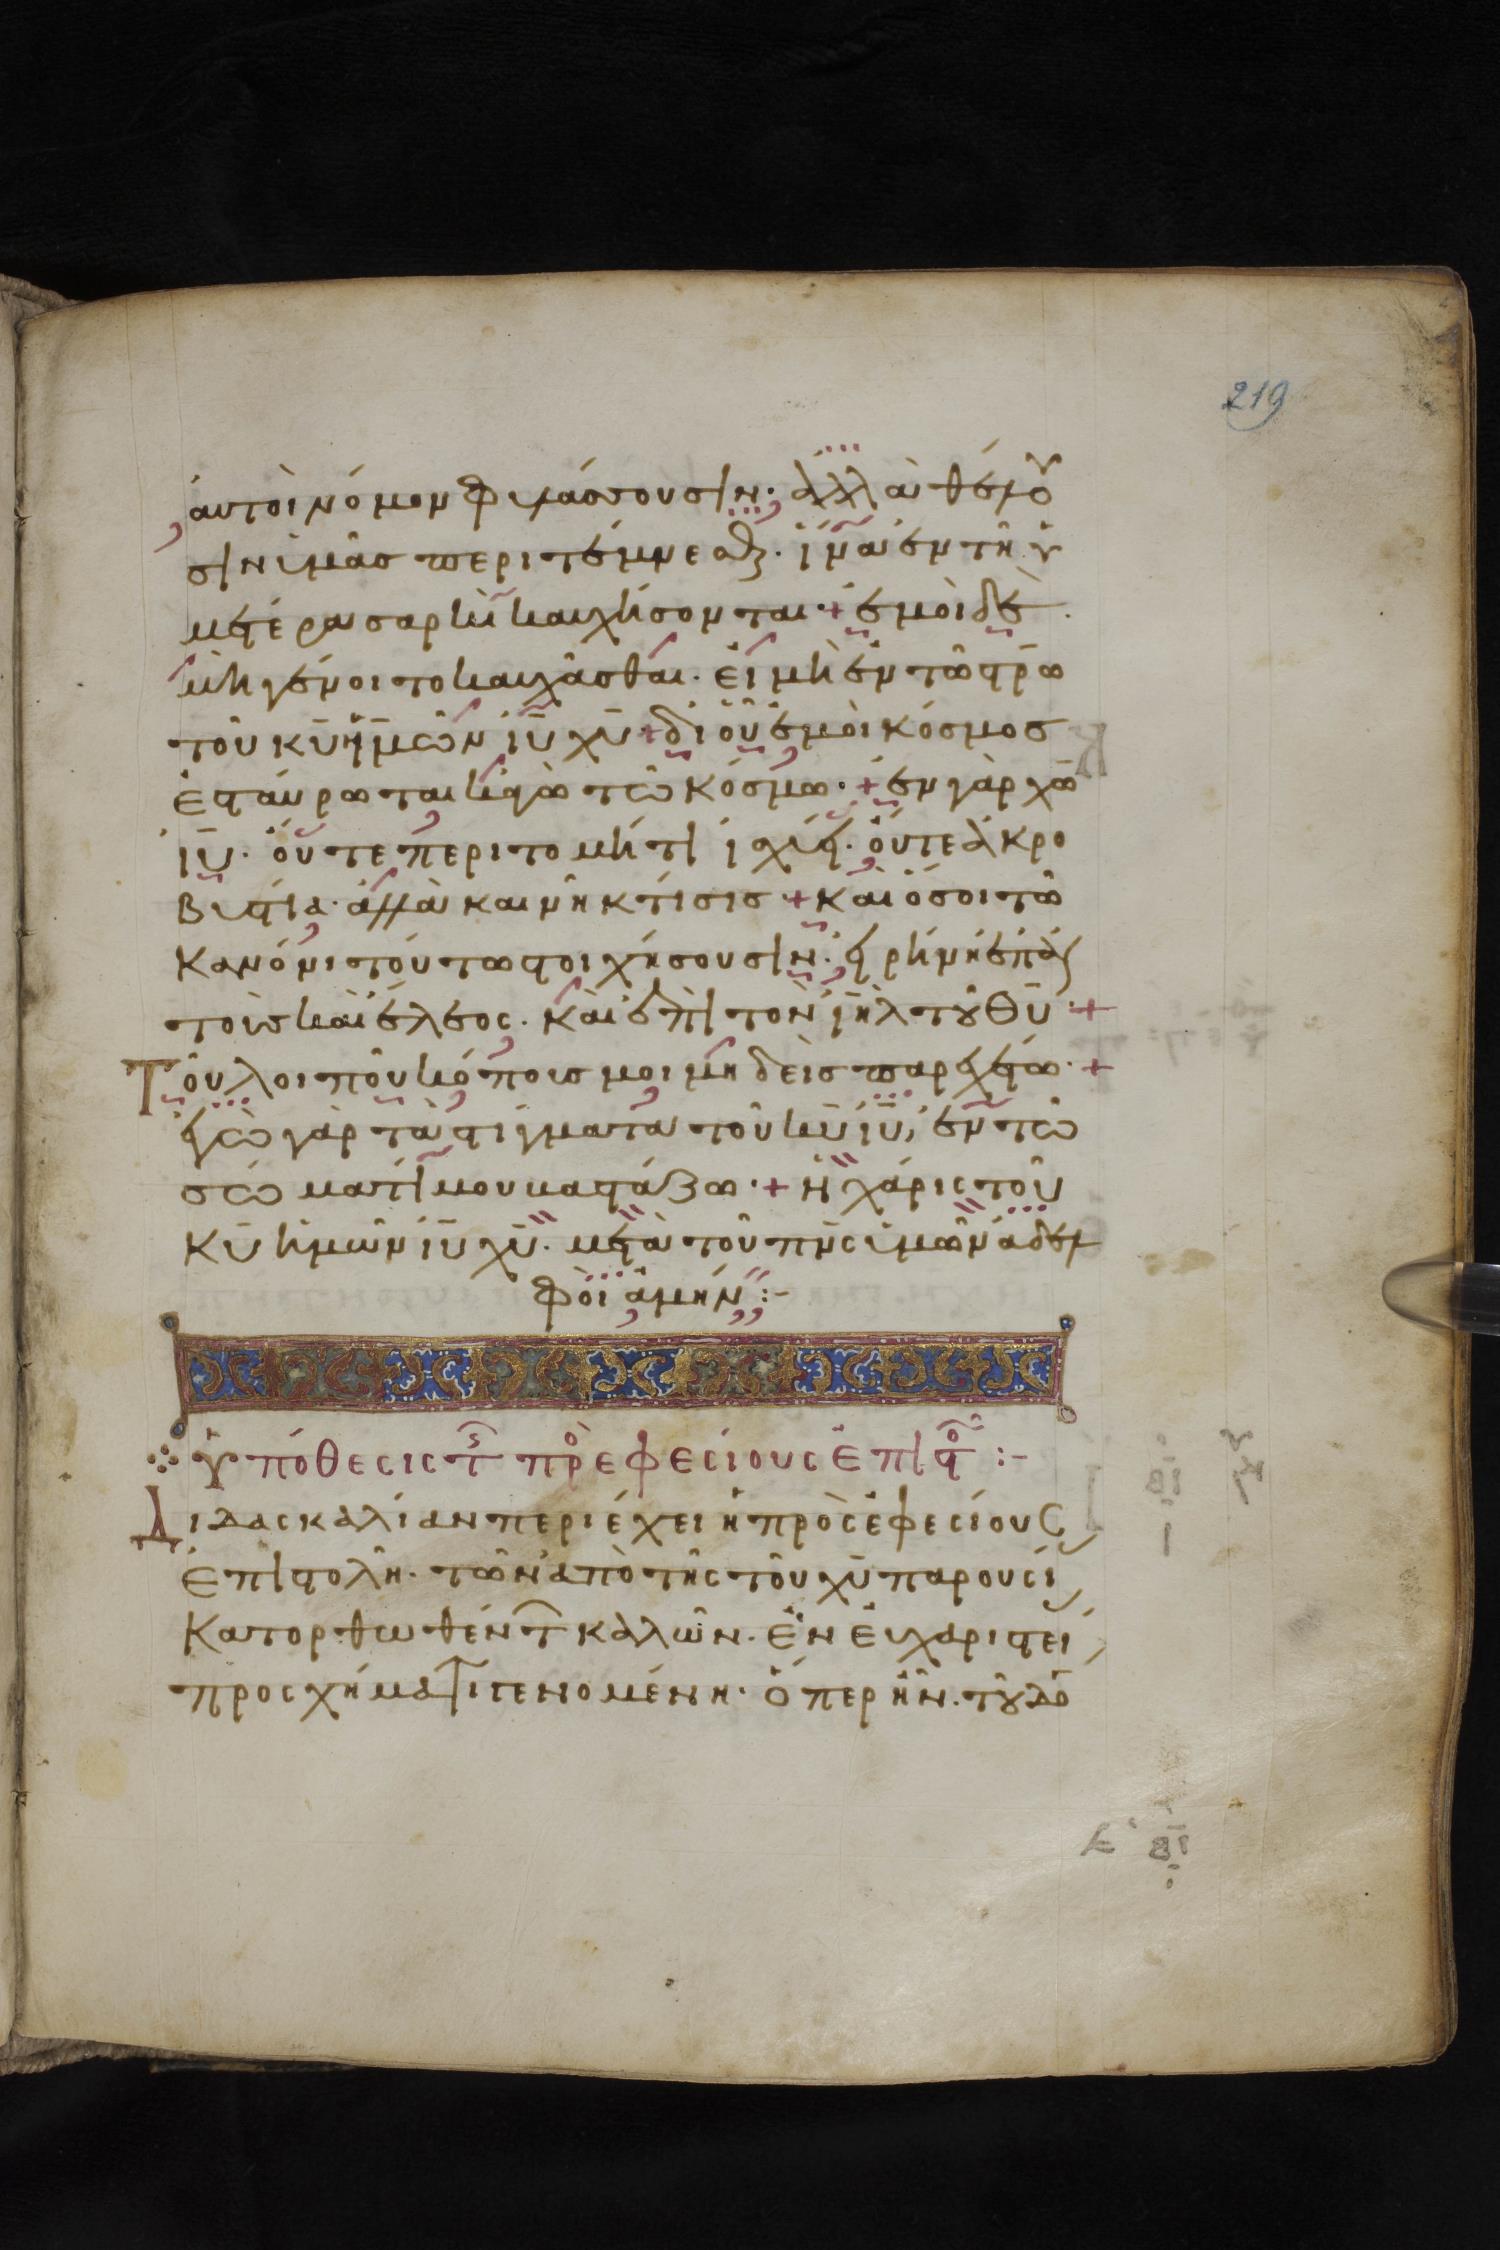 219
ἀυτοὶ νόμον φυλάσσουσιν· ἀλλὰ θέλου
σιν ὑμᾶσ περιτέμνεσθαι· ἵνα ἐν τῆ ὑ
μετέρα σαρκὶ καυχήσονται· + ἐμοὶ δὲ
μὴ γένοιτο καυχᾶσθαι· ἐἰ μὴ ἐν τῶ στρω
τοῦ κυ ἡμῶν ιυ χυ + δι οὗ ἐμοὶ κόσμοσ
ἐσταύρωται κἀγὼ τῶ κόσμω· + ἐν γὰρ χω
ιυ· ὄυτε περιτομή τι ἰσχύει· ὄυτε ἀκρο
βυστία· ἀλλὰ καινὴ κτίσισ + κὰι ὅσοι τῶ
κανόνι τούτω στοιχήσουσιν· εἰρήνη ἐπ ἀυ
τοὺσ καὶ ἔλεος· κὰι ἐπὶ τὸν ιηλ τοῦ θυ +
Τοῦ λοιποῦ κόπουσ μοι μηδεὶσ παρεχέτω· +
ἐγὼ γὰρ τὰ στίγματα τοῦ κυ ιυ, ἐν τῶ
σώματί μου βαστάζω· + ἡ χάρις τοῦ
κυ ἡμῶν ιυ χυ· μετὰ τοῦ πνς ὑμῶν ἀδελ
φοὶ ἀμήν :-
ὑπόθεσις τς πρὸ εφεσίους ἐπιστο :-
Διδασκαλίαν περιέχει ἡ πρὸς ἐφεσίους
ἐπιστολὴ· τῶν ἀπὸ τῆς τοῦ χυ παρουσί
κατορθωθέντ καλῶν· ἐν ἐυχαριστεί
προσχήματι γενομένη· ὅπερ ἦν· τοῦ δο